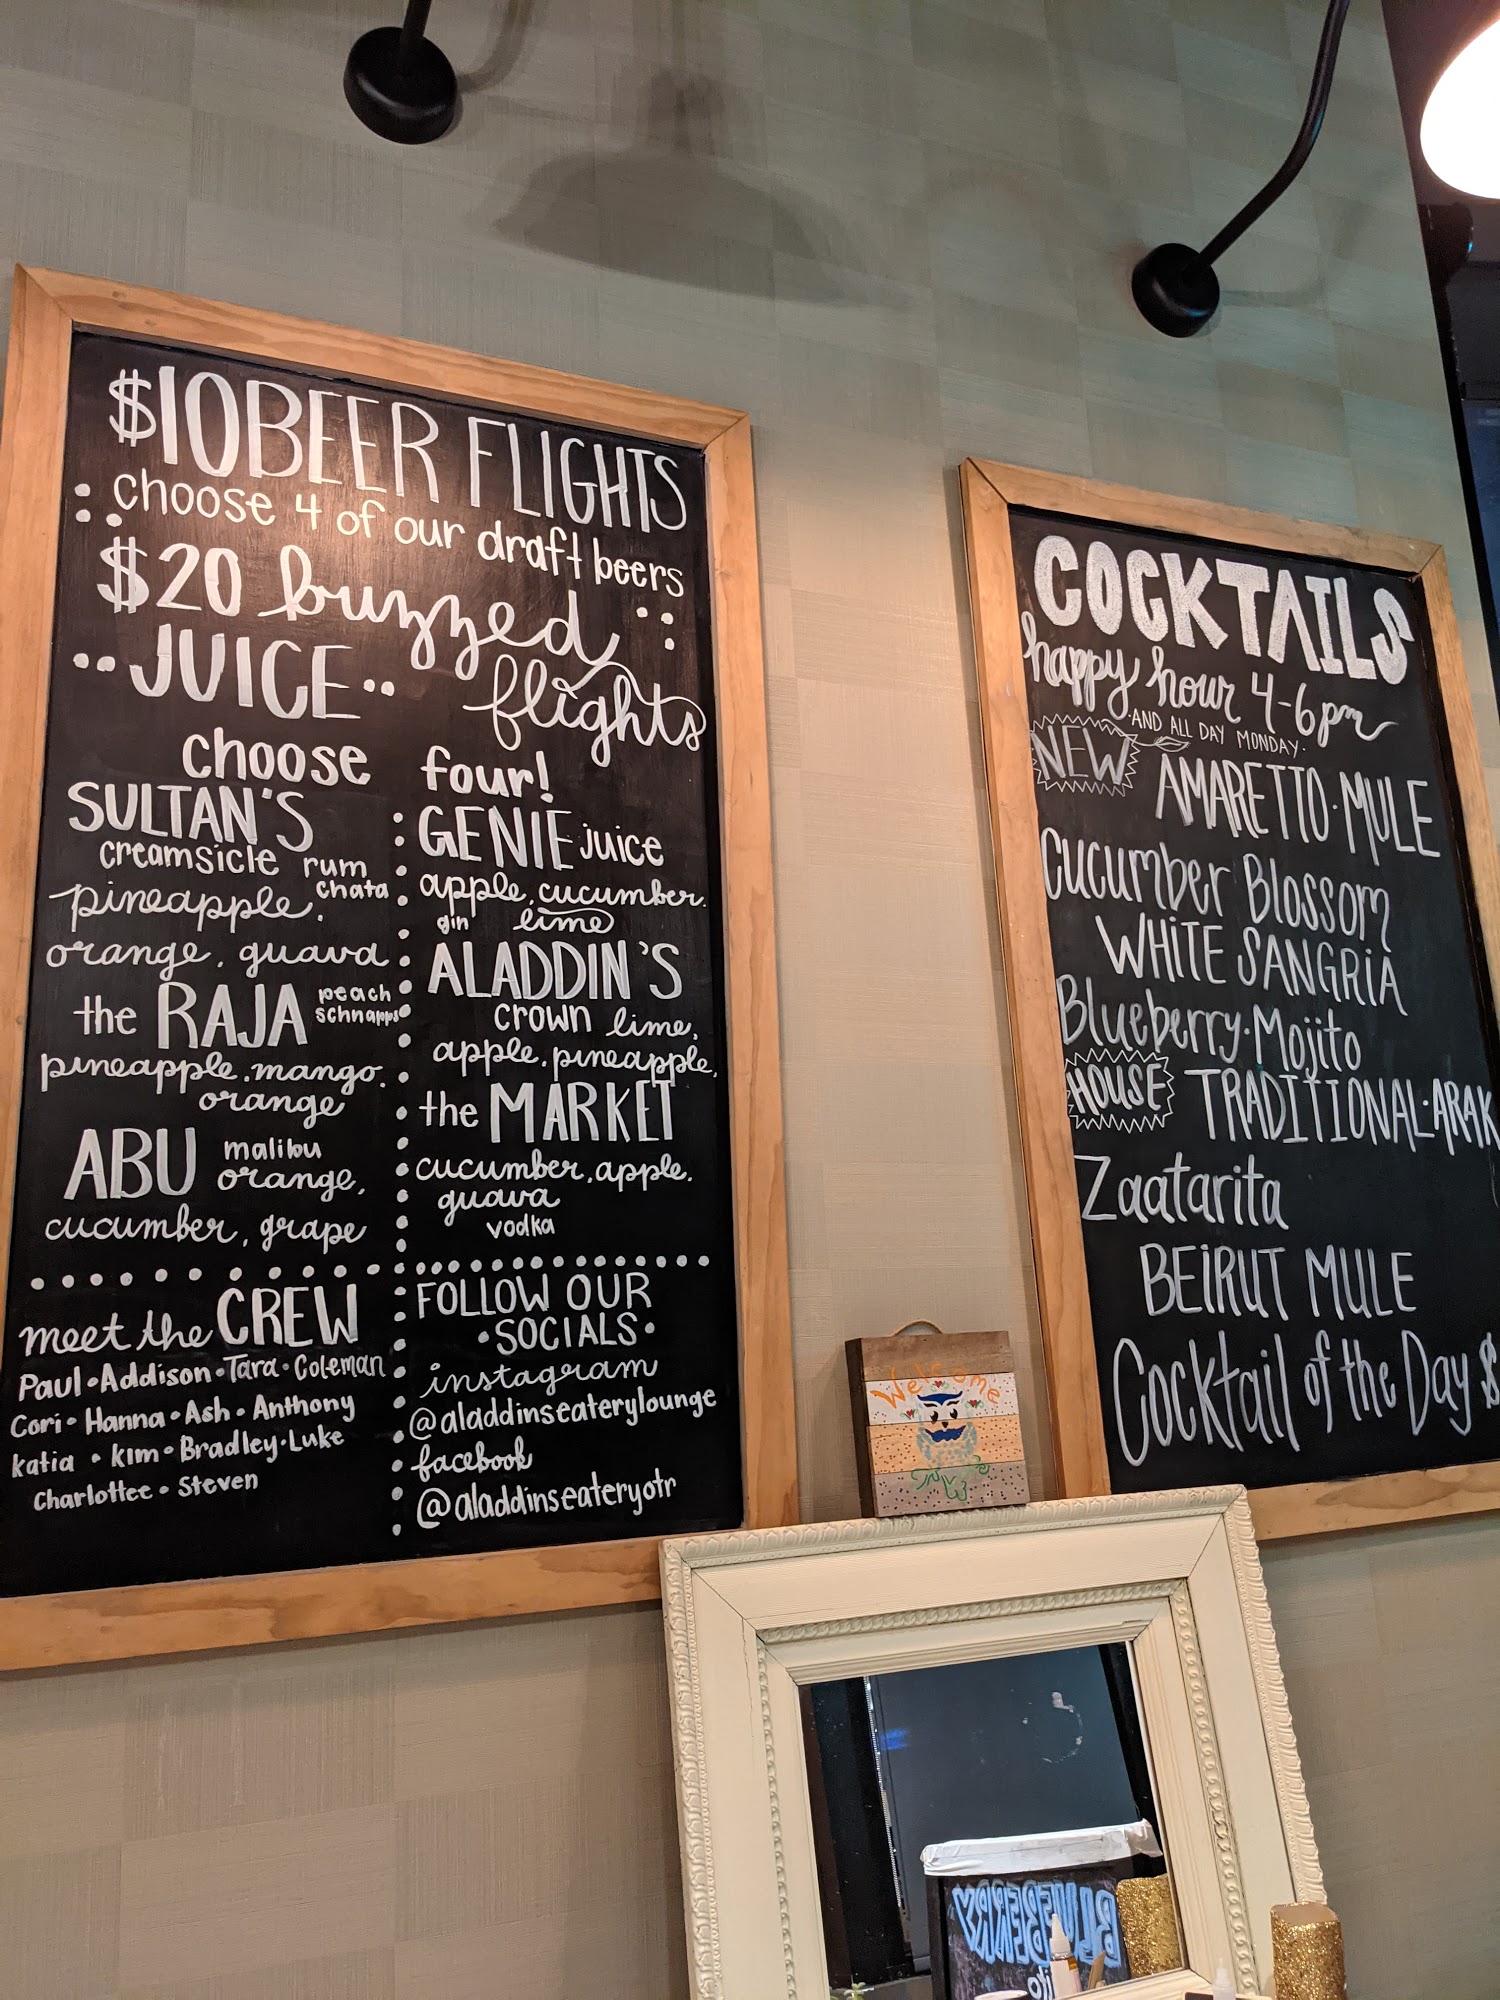 $10 BEER FLIGHTS
choose 4 of our draft beers
$20 buzzed
JUICE flights
choose four!
SULTAN'S
creamsicle rum
chata
pineapple,
orange, guava
the RAJA peach
schnapps
pineapple, mango,
orange
ABU malibu
orange,
cucumber, grape
GENIE juice
apple, cucumber,
gin lime
ALADDIN'S
crown lime,
apple, pineapple,
the MARKET
cucumber, apple,
guava
vodka
meet the CREW
Paul • Addison • Tara • Coleman
Cori • Hanna • Ash • Anthony
Katia • Kim • Bradley • Luke
Charlottee • Steven
FOLLOW OUR
• SOCIALS •
instagram
@aladdinseaterylounge
facebook
@aladdinseateryotr
COCKTAILS
happy hour 4-6pm
·AND ALL DAY MONDAY·
NEW AMARETTO·MULE
Cucumber Blossom
WHITE SANGRIA
Blueberry·Mojito
HOUSE TRADITIONAL·ARAK
Zaatarita
BEIRUT MULE
Cocktail of the Day $
Welcome
BLUEBERRY